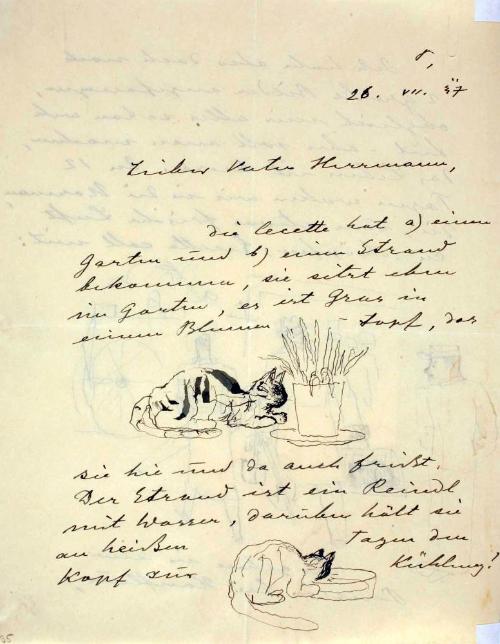 26. VII. 37
Lieber Vater Herrmann,
die Cecette hat a) einen
Garten und b) einen Strand
bekommen, sie sitzt eben
im Garten, es ist Gras in
einem Blumen - topf, das
sie hie und da auch frißt.
Der Strand ist ein Reindl
mit Wasser, darüber hält sie
an heißen Tagen den
Kopf zur Kühlung!